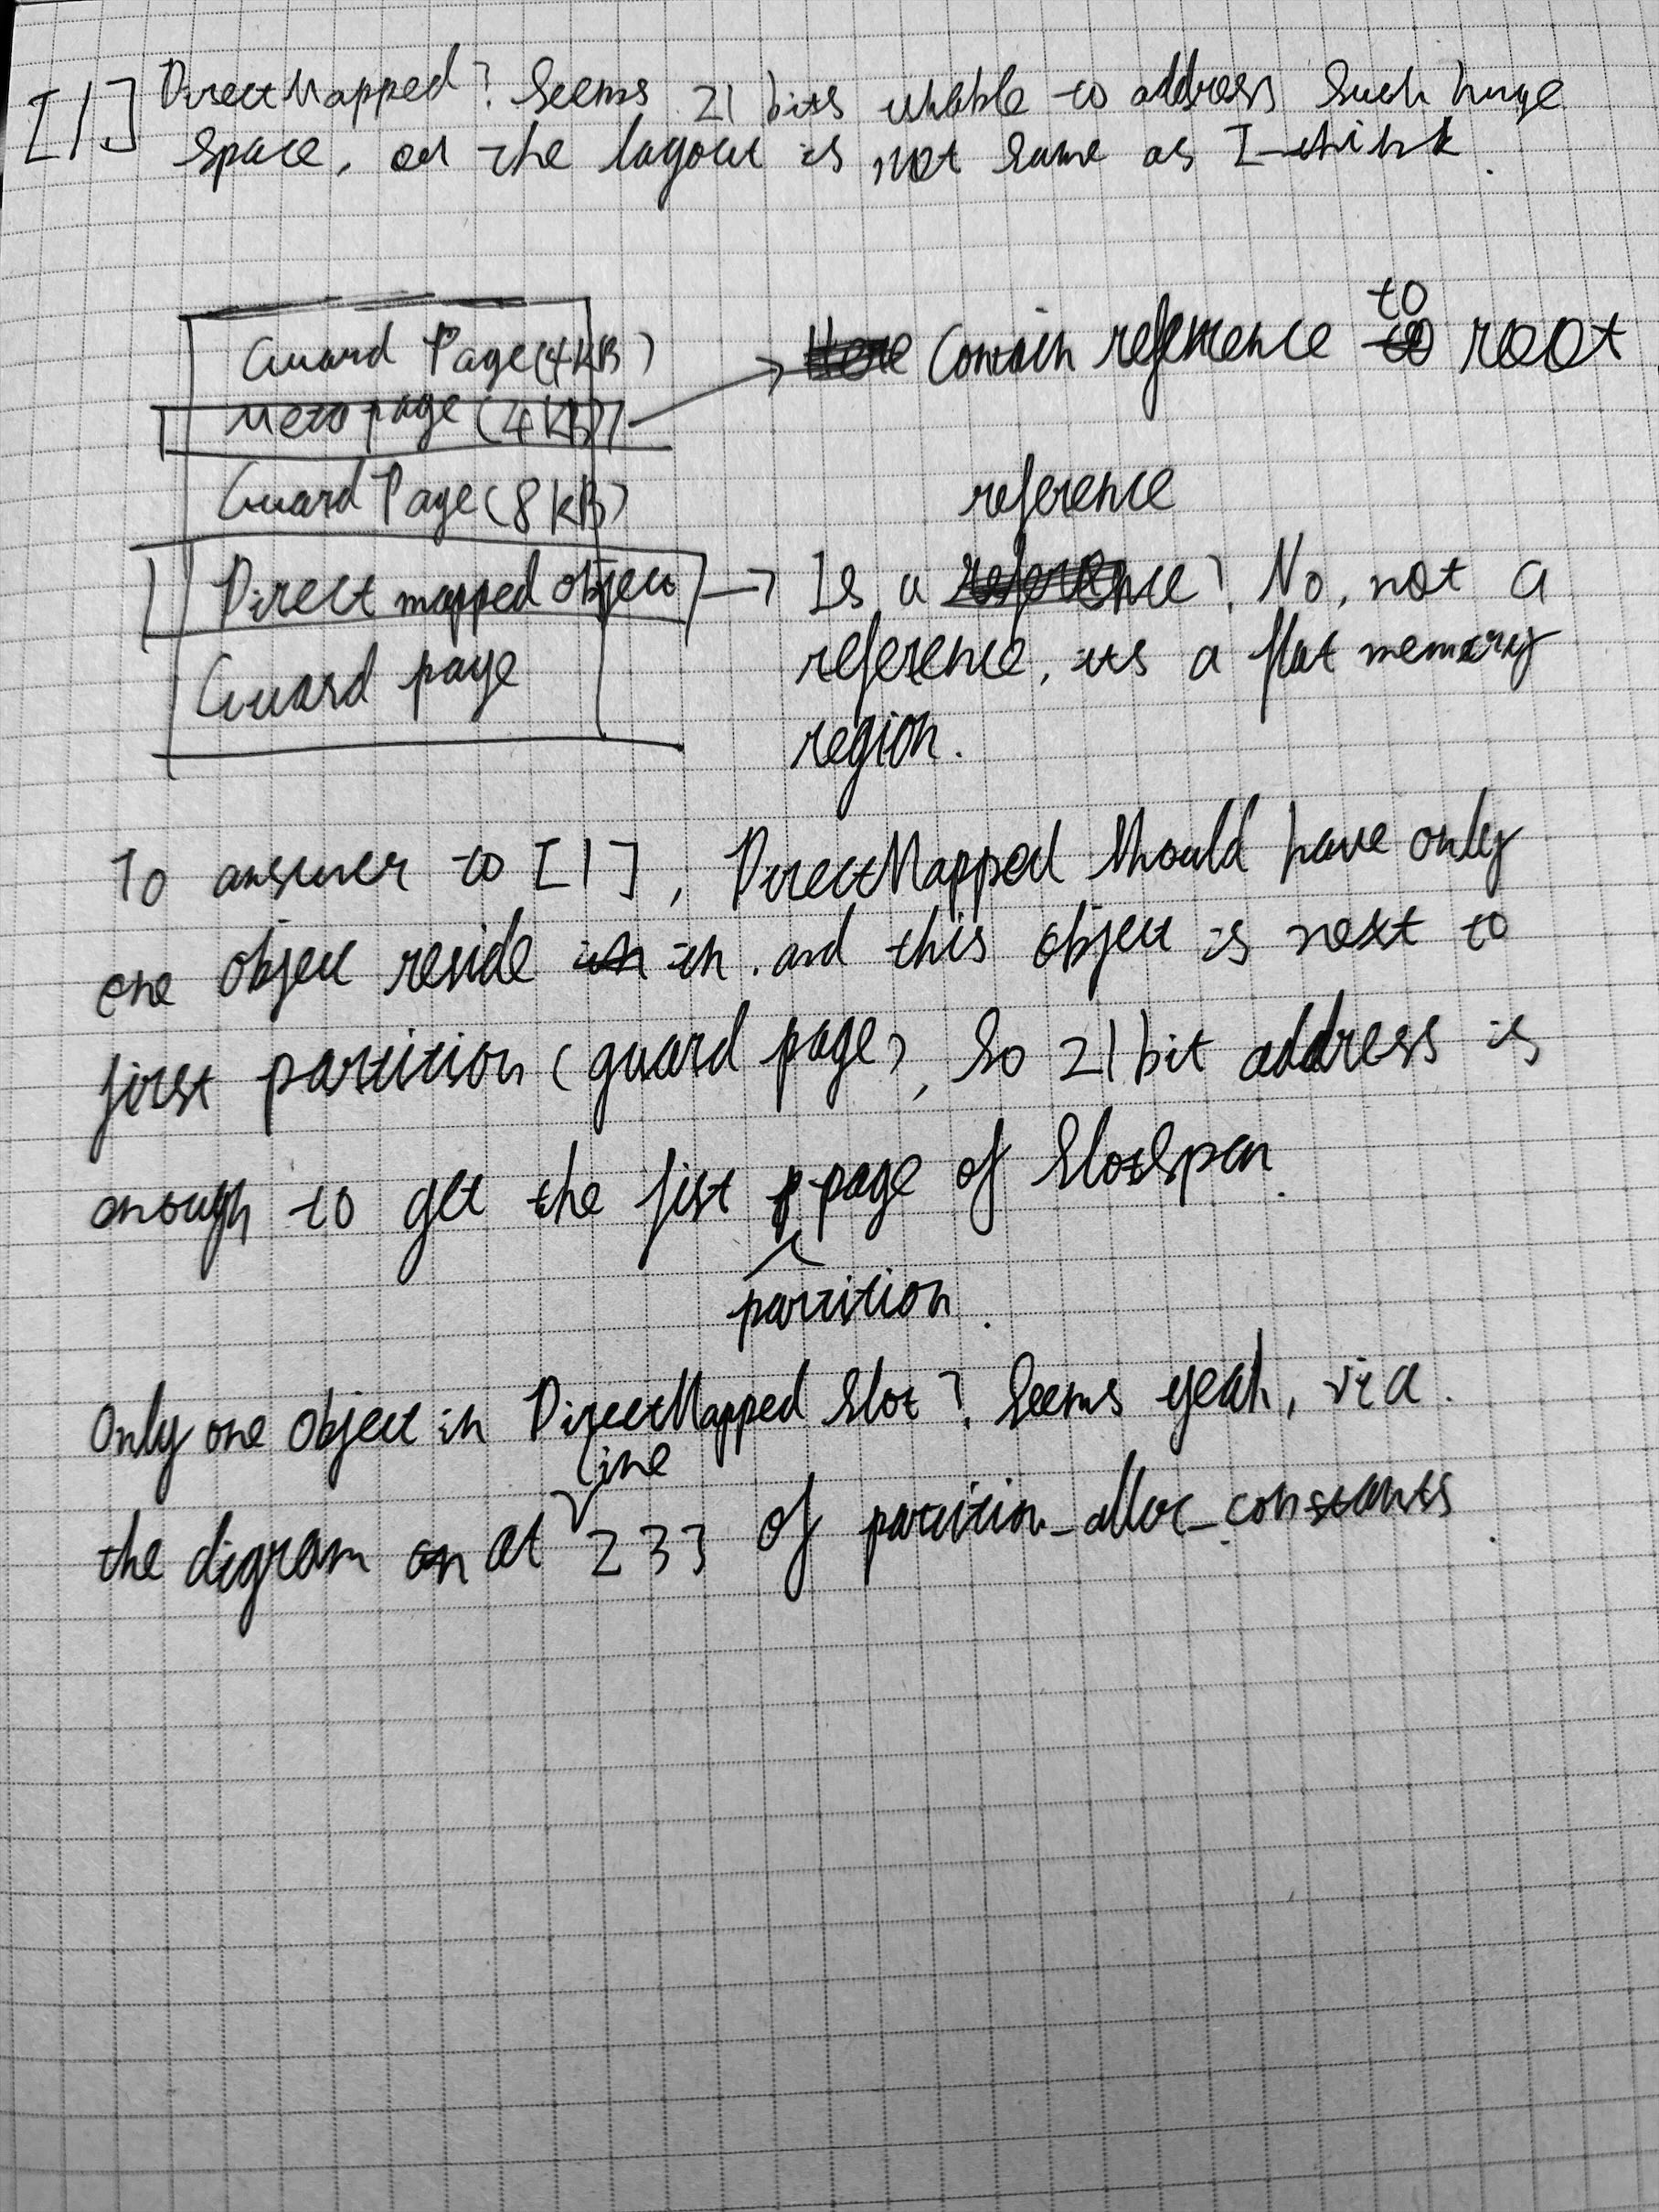 [1] DirectMapped? Seems 21 bits unable to address such huge
space, or the layout is not same as I think.
Guard Page(4KB)
Meta page (4KB)
Contain reference to root
Guard Page (8KB)
reference
Direct mapped object
Is a reference? No, not a
reference, its a flat memory
region.
Guard page
To answer to [1], DirectMapped should have only
one object reside in. and this object is next to
first partition (guard page), so 21 bit address is
enough to get the fist page of SlotSpan.
partition.
Only one object in DirectMapped Slot? Seems yeah, via
line
the digram at 233 of partition_alloc_constants.